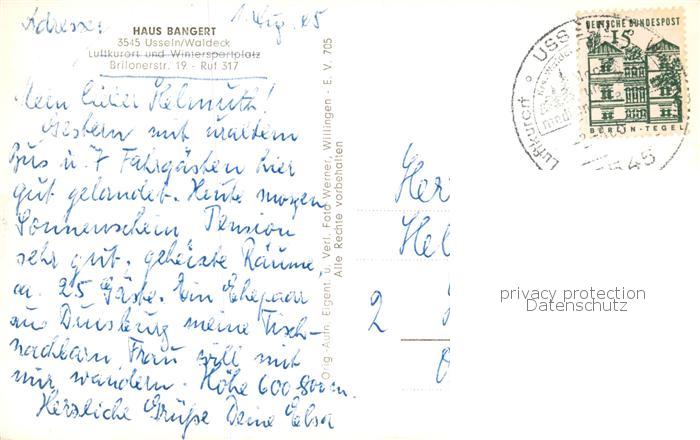 Adresse:
HAUS BANGERT
3545 Usseln/Waldeck
Luftkurort und Wintersportplatz
Brilonerstr. 19 - Ruf 317
1. Aug. 65
Mein lieber Helmuth!
Gestern mit uraltem
Bus u. 7 Fahrgästen hier
gut gelandet. Heute morgen
Sonnenschein Pension
sehr gut. geheizte Räume,
ca. 25 Gäste. Ein Ehepaar
aus Duisburg meine Tisch-
nachbarn Frau will mit
mir wandern. Höhe 600-800 m.
Herzliche Grüße Deine Elsa
Orig.-Aufn. Eigent. u. Verl. Foto Werner, Willingen - E. V. 705
Alle Rechte vorbehalten
Her
Hel
2
DEUTSCHE BUNDESPOST
15
BERLIN-TEGEL
USS
Luftkurort
3545
privacy protection
Datenschutz